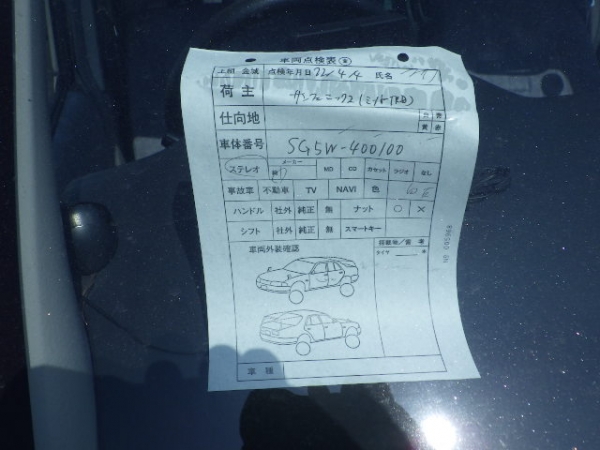 車両点検表
上組 金城 点検年月日 22/4/4 氏名
荷主
仕向地
車体番号 SG5W-400100
ステレオ メーカー MD CD カセット ラジオ なし
事故車 不動車 TV NAVI 色
ハンドル 社外 純正 無 ナット ○ ×
シフト 社外 純正 無 スマートキー
車両外装確認
タイヤ 本
車種